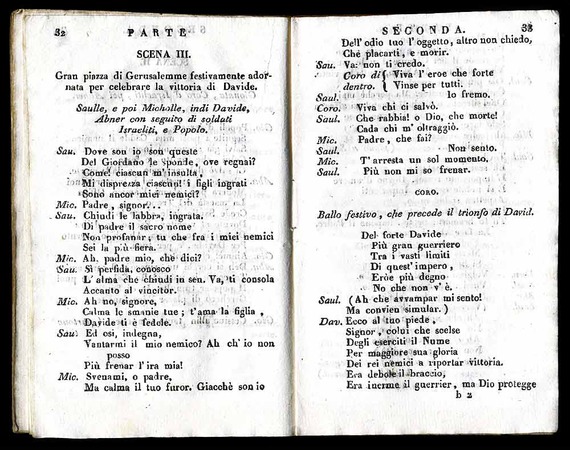 32 PARTE
SCENA III.
Gran piazza di Gerusalemme festivamente ador-
nata per celebrare la vittoria di Davide.
Saulle, e poi Micholle, indi Davide,
Abner con seguito di soldati
Israeliti, e Popolo.
Sau. Dove son io son queste
Del Giordano le sponde, ove regnai?
Come! ciascun m'insulta,
Mi disprezza ciascun! i figli ingrati
Sono ancor miei nemici?
Mic. Padre, signor...
Sau. Chiudi le labbra, ingrata.
Di padre il sacro nome
Non profanar; tu che fra i miei nemici
Sei la più fiera.
Mic. Ah, padre mio, che dici?
Sau. Sì perfida, conosco
L'alma che chiudi in sen. Va, ti consola
Accanto al vincitor.
Mic. Ah no, signore,
Calma le smanie tue; t'ama la figlia,
Davide ti è fedele.
Sau. Ed osi, indegna,
Vantarmi il mio nemico? Ah ch'io non
posso
Più frenar l'ira mia!
Mic. Svenami, o padre,
Ma calma il tuo furor. Giacchè son io
SECONDA. 33
Dell'odio tuo l'oggetto, altro non chiedo,
Che placarti, e morir.
Sau. Va: non ti credo.
Coro di { Viva l'eroe che forte
dentro. { Vinse per tutti.
Saul. Io fremo.
Coro. Viva chi ci salvò.
Saul. Che rabbia! o Dio, che morte!
Cada chi m'oltraggiò.
Mic. Padre, che fai?
Saul. Non sento.
Mic. T'arresta un sol momento.
Saul. Più non mi so frenar.
CORO.
Ballo festivo, che precede il trionfo di David.
Del forte Davide
Più gran guerriero
Tra i vasti limiti
Di quest'impero,
Eròe più degno
No che non v'è.
Saul. (Ah che avvampar mi sento!
Ma convien simular.)
Dav. Ecco al tuo piede,
Signor, colui che scelse
Degli eserciti il Nume
Per maggiore sua gloria
Dei rei nemici a riportar vittoria.
Era debole il braccio,
Era inerme il guerrier, ma Dio protegge
b 2